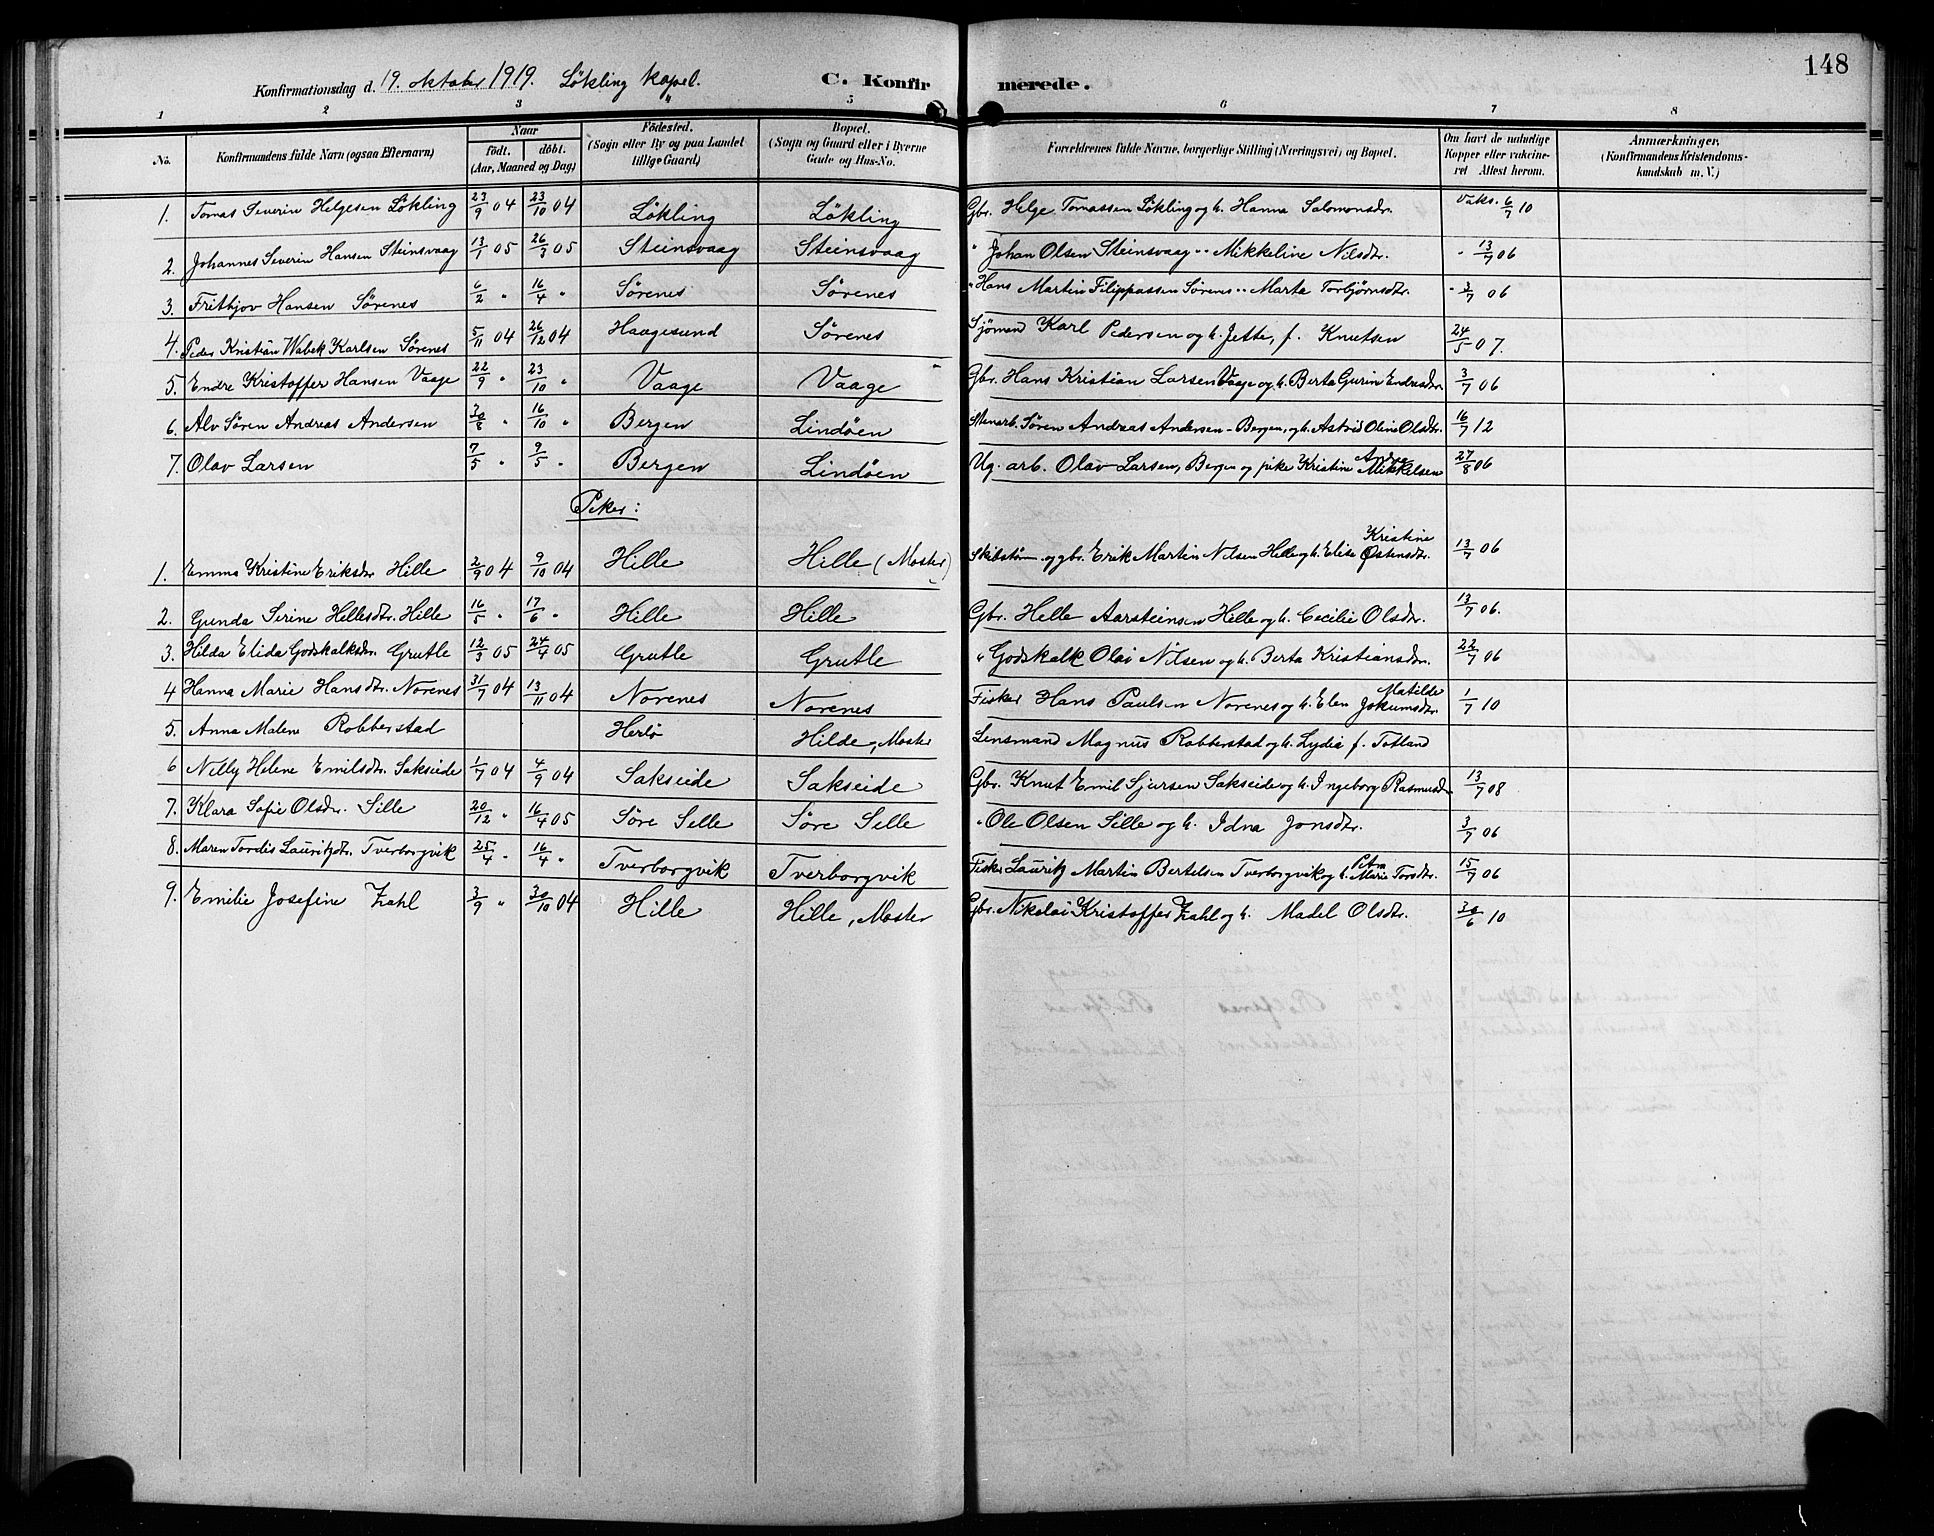 148
Konfirmationsdag d. 19. oktober 1919. Lökling kapel. C. Konfirmerede.
1 2 3 5 6 7 8
No. Konfirmandens fulde Navn (ogsaa Efternavn) Naar födt. döbt. (Aar, Maaned og Dag) Födested. (Sogn eller By og paa Landet tillige Gaard) Bopæl. (Sogn og Gaard eller i Byerne Gade og Hus-No. Forældrenes fulde Navne, borgerlige Stilling (Næringsvei) og Bopæl. Om havt de naturlige Kopper eller vakcineret Attest herom. Anmærkninger. (Konfirmandens Kristendomskundskab m. V.)
1. Tomas Severin Helgesen Lökling 23/9 04 23/10 04 Lökling Lökling Gbr. Helge Tomassen Lökling og h. Hanna Salomonsdr. Vaks. 6/7 10
2. Johannes Severin Hansen Steinsvaag 13/1 05 26/3 05 Steinsvaag Steinsvaag " Johan Olsen Steinsvaag " " Mikkeline Nilsdr. " 13/7 06
3. Frithjov Hansen Sørenes 6/2 " 16/4 " Sørenes Sørenes " Hans Martin Filippassen Sørenes " " Marta Torbjørnsdtr. " 3/7 06
4. Peder Kristian Wabek Karlsen Sørenes 5/11 04 26/12 04 Haugesund Sørenes Sjømand Karl Pedersen og h. Jette, f. Knutsen 24/5 07.
5. Endre Kristoffer Hansen Vaage 22/9 " 23/10 " Vaage Vaage Gbr. Hans Kristian Larsen Vaage og h. Berta Gurin Endresdtr. 3/7 06
6. Alv Sören Andreas Andersen 30/8 " 16/10 " Bergen Lindöen Stenarb. Sören Andreas Andersen - Bergen, og h. Astrid Oline Olsdtr. 16/7 12
7. Olav Larsen 7/5 " 9/5 " Bergen Lindöen Ug. arb. Olav Larsen, Bergen og pike Kristine Andrea Mikkelsen 27/8 06
Piker:
1. Emma Kristine Eriksdr Hille 2/9 04 9/10 04 Hille Hille (Moster) Skibstøm. og gbr. Erik Martin Nilsen Hille og h. Elise Kristine Østensdtr. 13/7 06
2. Gunda Serine Hellesdtr. Hille 16/5 " 17/6 " Hille Hille Gbr. Helle Aarsteinsen Hille og h. Cecilie Olsdtr. 13/7 06.
3. Hilda Elida Godskalksdr. Grutle 12/3 05 24/4 05 Grutle Grutle " Godskalk Olai Nilsen og h. Berta Kristiansdtr. 22/7 06
4 Hanna Marie Hansdtr. Norenes 31/7 04 13/11 04 Norenes Norenes Fisker Hans Paulsen Norenes og h. Elen Matilde Jokumsdtr. 1/7 10
5. Anna Malene Robberstad Herlö Hilde, Moster Lensmand Magnus Robberstad og h. Lydia f. Totland
6 Nelly Helene Emilsdtr. Sakseide 1/7 04 4/9 04 Sakseide Sakseide Gbr. Knut Emil Sjursen Sakseide og h. Ingeborg Rasmusdr 13/7 08
7. Klara Sofie Olsdr. Sille 20/12 " 16/4 05 Söre Selle Söre Selle " Ole Olsen Sille og h. Idna Jonsdtr. 3/7 06
8. Maren Tordis Lauritzdtr. Tverborgvik 25/4 " 16/4 " Tverborgvik Tverborgvik Fisker Lauritz Martin Bertelsen Tverborgvik og h. Petra Marie Torsdtr. 15/7 06
9. Emilie Josefine Zahl 3/9 " 30/10 04 Hille Hille, Moster Gbr. Nikolai Kristoffer Zahl og h. Madel Olsdtr. 30/6 10